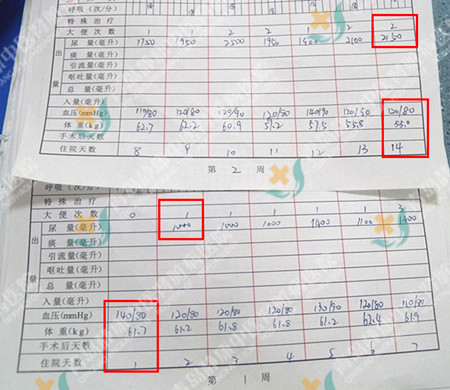 呼吸(次/分)
特殊治疗
大便次数 1 1 2 2 2 2 2
出量 尿量(毫升) 1750 1950 2500 1950 2100 2150
痰量(毫升)
引流量(毫升)
呕吐量(毫升)
总量(毫升)
入量(毫升)
血压(mmHg) 110/80 120/80 120/90 120/80 140/90 120/80
体重(kg) 62.7 62.2 60.9 57.5 55.8
手术后天数
住院天数 8 9 10 11 12 13 14
第 2 周
特殊治疗
大便次数 0 1 1 1 1 1 3
出量 尿量(毫升) 1000 1000 1000 1400 1100
痰量(毫升)
引流量(毫升)
呕吐量(毫升)
总量(毫升)
入量(毫升)
血压(mmHg) 140/80 120/80 120/80 120/80 120/80
体重(kg) 61.7 61.2 61.8 61.8 61.2 61.9
手术后天数
住院天数 1 2 3 4 5 6 7
第 1 周